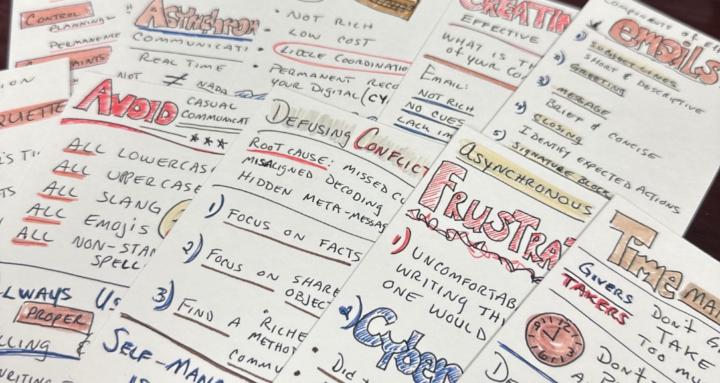 CONTROL
PLANNING
PERMANENCE
ASYNCHRON
COMMUNICATI
REAL TIME
NOT ≠ NADA
NOT RICH
LOW COST
LITTLE COORDINATIO
PERMANENT RECO
YOUR DIGITAL (CY
CREATIN
EFFECTIVE
WHAT IS TH
OF YOUR CO
EMAIL:
NOT RICH
NO CUES
LACK IM
COMPONENTS OF E
emails
1) SUBJECT LINES
SHORT & DESCRIPTIVE
2) GREETING
3) MESSAGE
BRIEF & CONCISE
4) CLOSING
IDENTIFY EXPECTED ACTIONS
5) SIGNATURE BLOCK
ION
QUETTE
AVOID CASUAL
COMMUNICAT
ALL LOWERCAS
ALL UPPERCASE
ALL SLANG
ALL EMOJIS
ALL NON-STAN
SPELL
DEFUSING CONFLICT
ROOT CAUSE: MISSED CU
MISALIGNED DECODING
HIDDEN META-MESSAG
1) FOCUS ON FACTS
2) FOCUS ON SHARE
OBJEC
3) FIND A RICHE
METHO
COMMU
ASYNCHRONOUS
FRUSTRA
1) UNCOMFORTAB
WRITING TH
ONE WOULD
Cyber
Did
TIME MA
GIVERS
TAKERS
DON'T G
TAKE
TOO MU
DON'T
A P
LWAYS US
PROPER
LLING &
WRITING
SELF-MAN